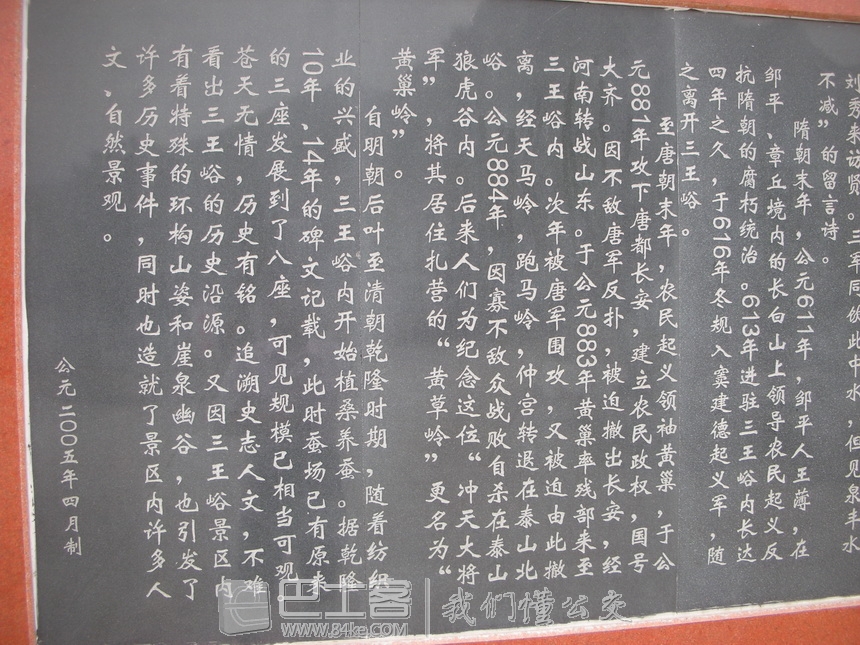 刘秀来访贤。三军同饮此中水，但见泉丰水
不减”的留言诗。
隋朝末年，公元611年，邹平人王薄，在
邹平、章丘境内的长白山上领导农民起义反
抗隋朝的腐朽统治。613年进驻三王峪内长达
四年之久，于616年冬规入窦建德起义军，随
之离开三王峪。
至唐朝末年，农民起义领袖黄巢，于公
元881年攻下唐都长安，建立农民政权，国号
大齐。因不敌唐军反扑，被迫撤出长安，经
河南转战山东。于公元883年黄巢率残部来至
三王峪内。次年被唐军围攻，又被迫由此撤
离，经天马岭，跑马岭，仲宫转退在泰山北
峪。公元884年，因寡不敌众战败自杀在泰山
狼虎谷内。后来人们为纪念这位“冲天大将
军”，将其居住扎营的“黄草岭”更名为“
黄巢岭”。
自明朝后叶至清朝乾隆时期，随着纺织
业的兴盛，三王峪内开始植桑养蚕。据乾隆
10年、14年的碑文记载，此时蚕场已有原来
的三座发展到了八座，可见规模已相当可观。
苍天无情，历史有铭。追溯史志人文，不难
看出三王峪的历史沿源。又因三王峪景区内
有着特殊的环构山姿和崖泉幽谷，也引发了
许多历史事件，同时也造就了景区内许多人
文、自然景观。
公元二00五年四月制
巴士客
WWW.84KE.COM
我们懂公交